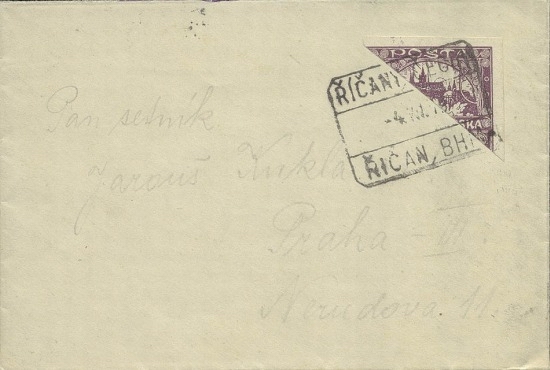 POŠTA
ŘÍČANY
-4.
SKA
ŘIČAN, BH
Pan sedník
Jarouš Kukla
Praha - III
Nerudova 11.